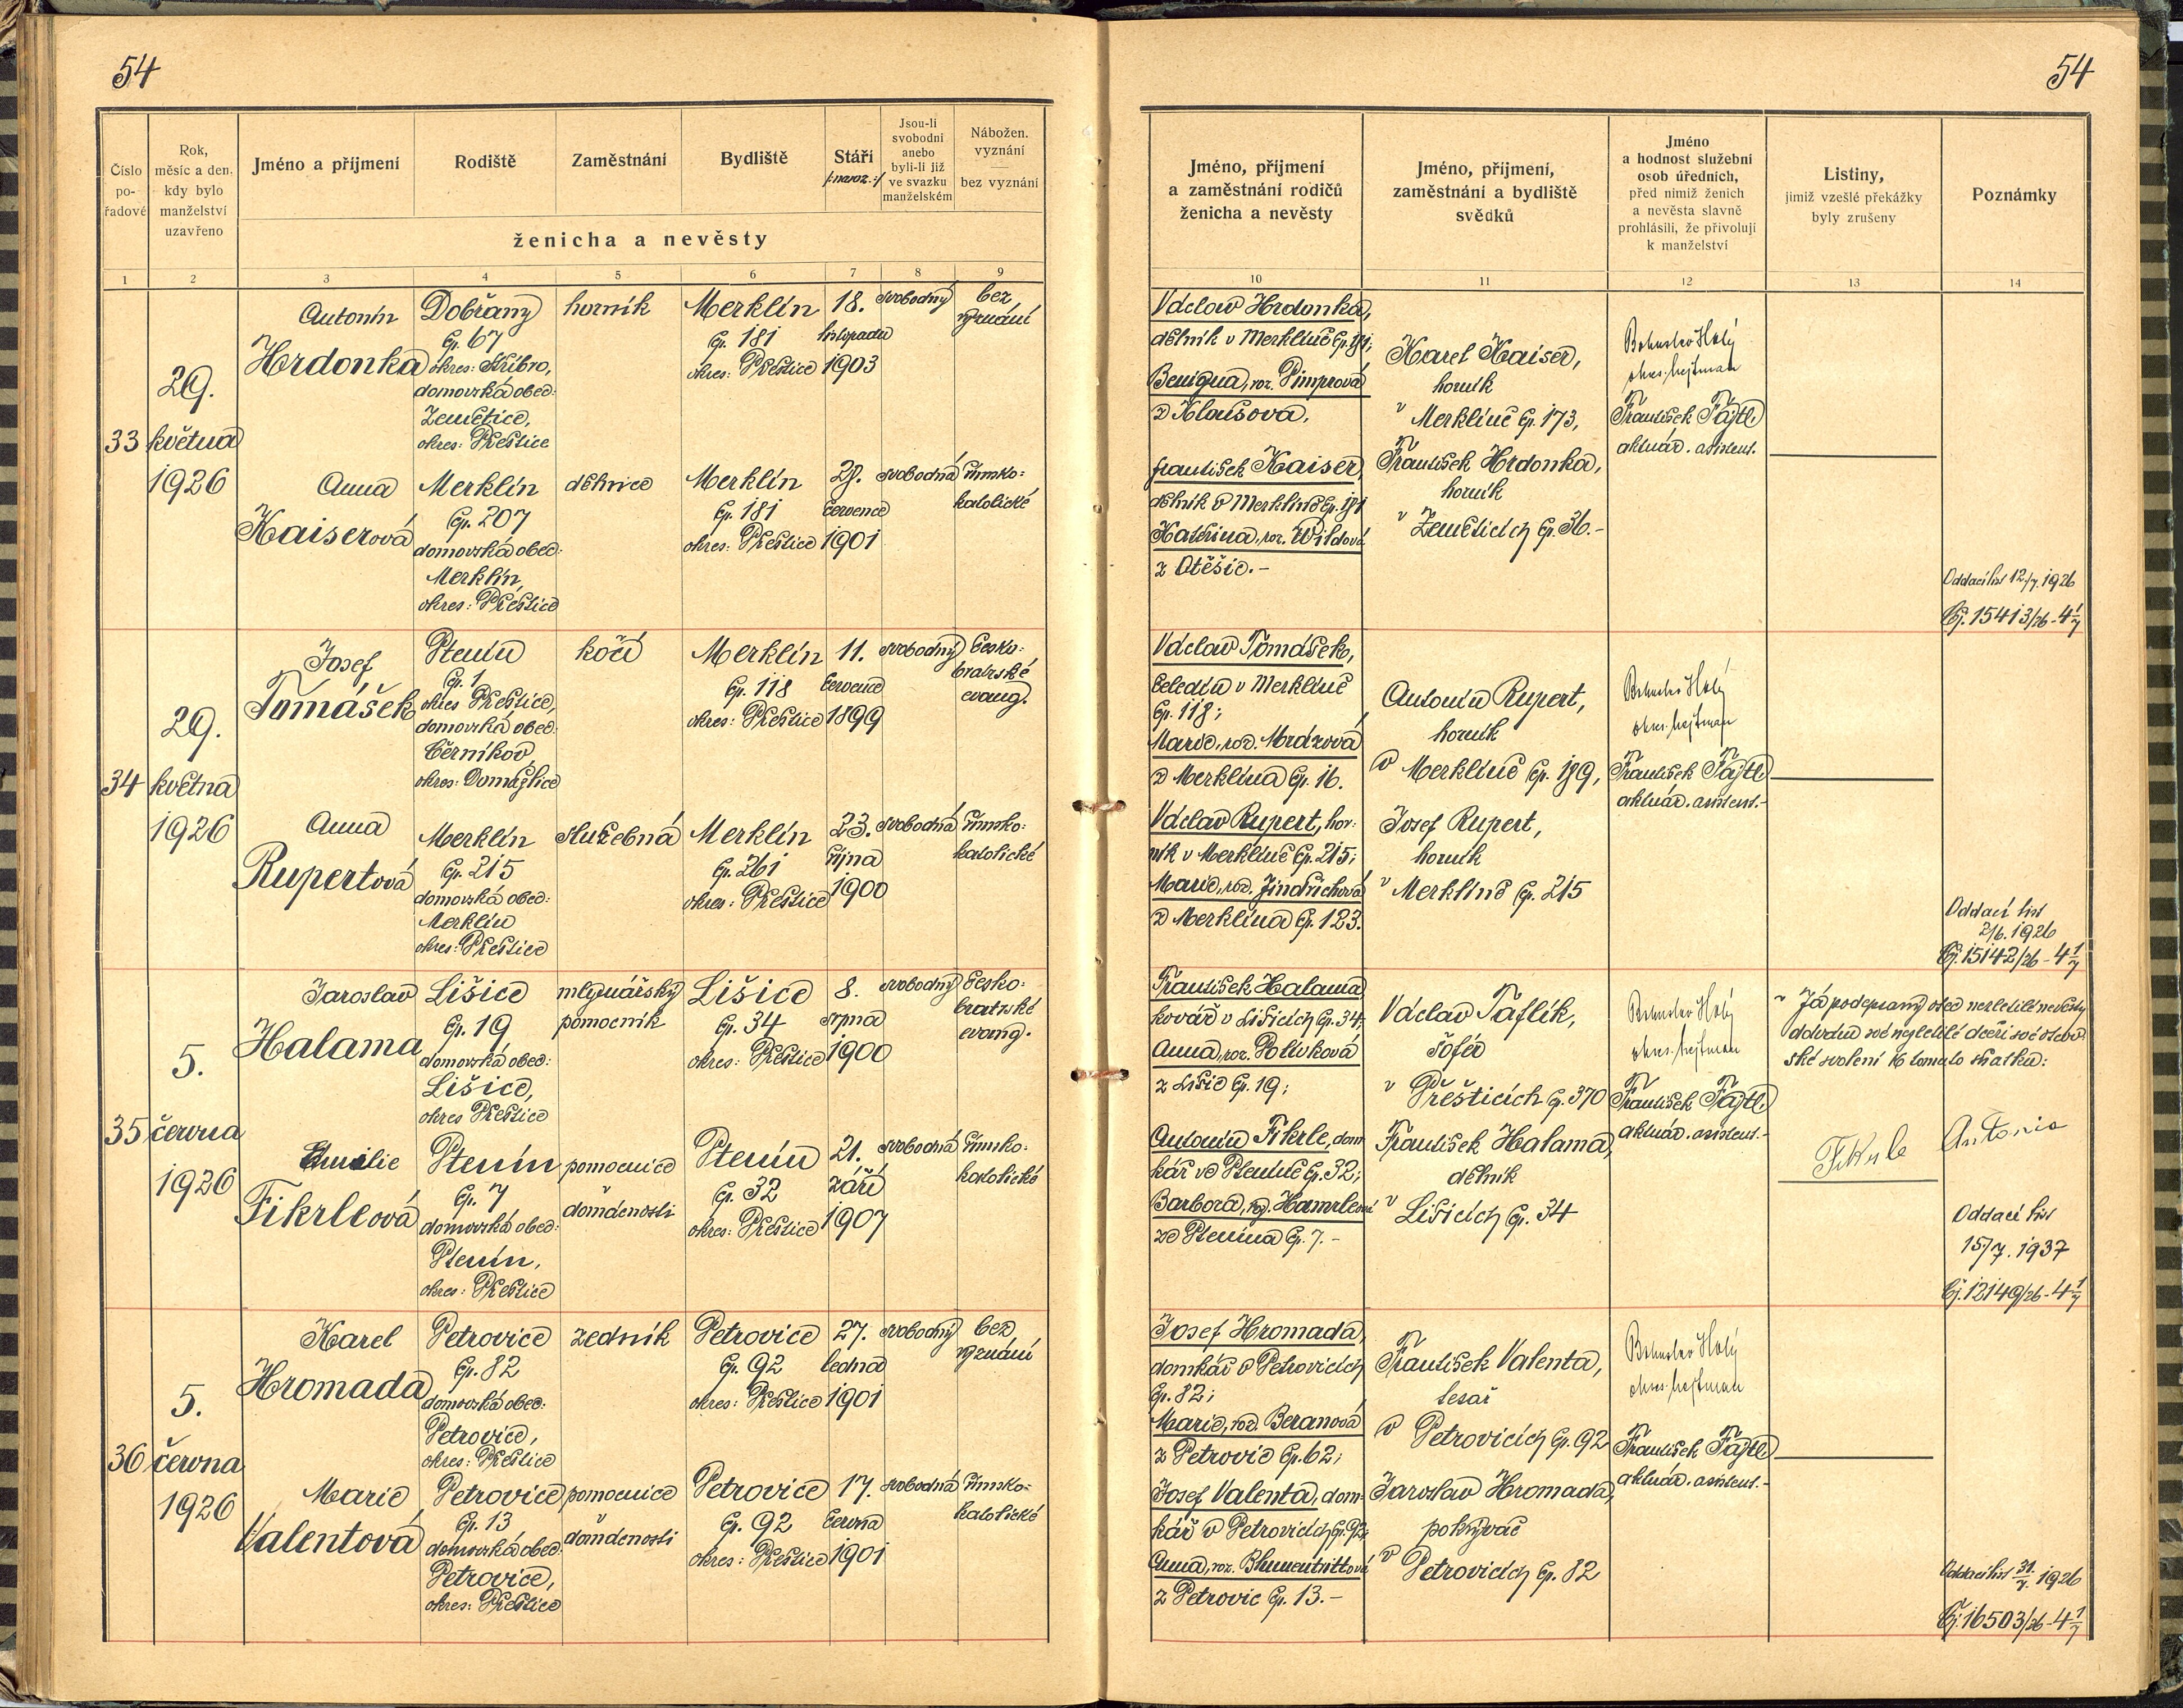 54
54
Číslo po-řadové
Rok, měsíc a den, kdy bylo manželství uzavřeno
Jméno a příjmení
Rodiště
Zaměstnání
Bydliště
Stáří
/:naroz.:/
Jsou-li svobodni anebo byli-li již ve svazku manželském
Nábožen. vyznání
bez vyznání
ženicha a nevěsty
1 2 3 4 5 6 7 8 9
Jméno, příjmení
a zaměstnání rodičů
ženicha a nevěsty
Jméno, příjmení,
zaměstnání a bydliště
svědků
Jméno
a hodnost služební
osob úředních,
před nimiž ženich
a nevěsta slavně
prohlásili, že přivolují
k manželství
Listiny,
jimiž vzešlé překážky
byly zrušeny
Poznámky
10 11 12 13 14
33
29.
května
1926
Antonín
Hrdonka
Dobřany
čp. 67
okres: Stříbro,
domovská obec:
Zemětice,
okres: Přeštice
horník
Merklín
čp. 181
okres: Přeštice
18.
listopadu
1903
svobodný
bez
vyznání
Anna
Kaiserová
Merklín
čp. 207
domovská obec:
Merklín,
okres: Přeštice
dělnice
Merklín
čp. 181
okres: Přeštice
července
1901
svobodná
římsko-
katolické
Václav Hrdonka,
dělník v Merklíně čp. 181;
Benigna, roz. Pimprová
z
František Kaiser,
dělník v Merklíně čp. 181
Kateřina, roz. Wildová
z Otěšic.-
Karel Kaiser,
horník
v Merklíně čp. 173,
František Hrdonka,
horník
v Zeměticích čp. 36.-
Bohuslav Holý
okres. hejtman
František Fajtl
aktuár. asistent.
Oddací list 12/7. 1926
Čj. 15413/26-4 1/7
34
29.
května
1926
Josef
Tomášek
Ptenín
čp. 1
okres Přeštice,
domovská obec:
Černíkov,
okres: Domažlice
kočí
Merklín
čp. 118
okres: Přeštice
11.
července
1899
svobodný
česko-
bratrské
evang.
Anna
Rupertová
Merklín
čp. 215
domovská obec:
Merklín
okres: Přeštice
služebná
Merklín
čp. 261
okres: Přeštice
23.
října
1900
svobodná
římsko-
katolické
Václav Tomášek,
čeledín v Merklíně
čp. 118;
Marie, roz. Mrázová
z Merklína čp. 16.
Václav Rupert, hor-
ník v Merklíně čp. 215;
Marie, roz. Jindřichová
z Merklína čp. 123.
Antonín Rupert,
horník
v Merklíně čp. 189,
Josef Rupert,
horník
v Merklíně čp. 215
Bohuslav Holý
okres. hejtman
František Fajtl
aktuár. asistent.-
Oddací list
2/6. 1926
Čj. 15142/26-4 1/7
35
5.
června
1926
Jaroslav
Halama
Lišice
čp. 19
domovská obec:
Lišice,
okres Přeštice
mlynářský
pomocník
Lišice
čp. 34
okres: Přeštice
8.
srpna
1900
svobodný
česko-
bratrské
evang.
Emilie
Fikrleová
Ptenín
čp. 7
domovská obec:
Ptenín,
okres: Přeštice
pomocnice
v
domácnosti
Ptenín
čp. 32
okres: Přeštice
21.
září
1907
svobodná
římsko-
katolické
František Halama
kovář v Lišicích čp. 34;
Anna, roz. Polívková
z Lišic čp. 19;
Antonín Fikrle, dom-
kář ve Pteníně čp. 32;
Barbora, roz. Hamrlová
ze Ptenína čp. 7.-
Václav Taflík,
šofér
v Přešticích čp. 370
František Halama,
dělník
v Lišicích čp. 34
Bohuslav Holý
okres. hejtman
František Fajtl
aktuár. asistent.-
Já podepsaný otec nezletilé nevěsty
své nezletilé dceři své otcov-
ské svolení k tomuto sňatku:
Fikrle Antonín
Oddací list
15/7. 1937
Čj. 12149/26-4 1/7
36
5.
června
1926
Karel
Hromada
Petrovice
čp. 82
domovská obec:
Petrovice,
okres: Přeštice
zedník
Petrovice
čp. 92
okres: Přeštice
27.
ledna
1901
svobodný
bez
vyznání
Marie
Valentová
Petrovice
čp. 13
domovská obec:
Petrovice,
okres: Přeštice
pomocnice
v
domácnosti
Petrovice
čp. 92
okres: Přeštice
17.
června
1901
svobodná
římsko-
katolické
Josef Hromada,
domkář v Petrovicích
čp. 82;
Marie, roz. Beranová
z Petrovic čp. 62;
Josef Valenta, dom-
kář v Petrovicích čp. 92;
Anna, roz. Blumentrittová
z Petrovic čp. 13.-
František Valenta,
tesař
v Petrovicích čp. 92
Jaroslav Hromada,
pokrývač
v Petrovicích čp. 82
Bohuslav Holý
okres. hejtman
František Fajtl
aktuár. asistent.-
Oddací list 31/7. 1926
Čj. 16503/26-4 1/7